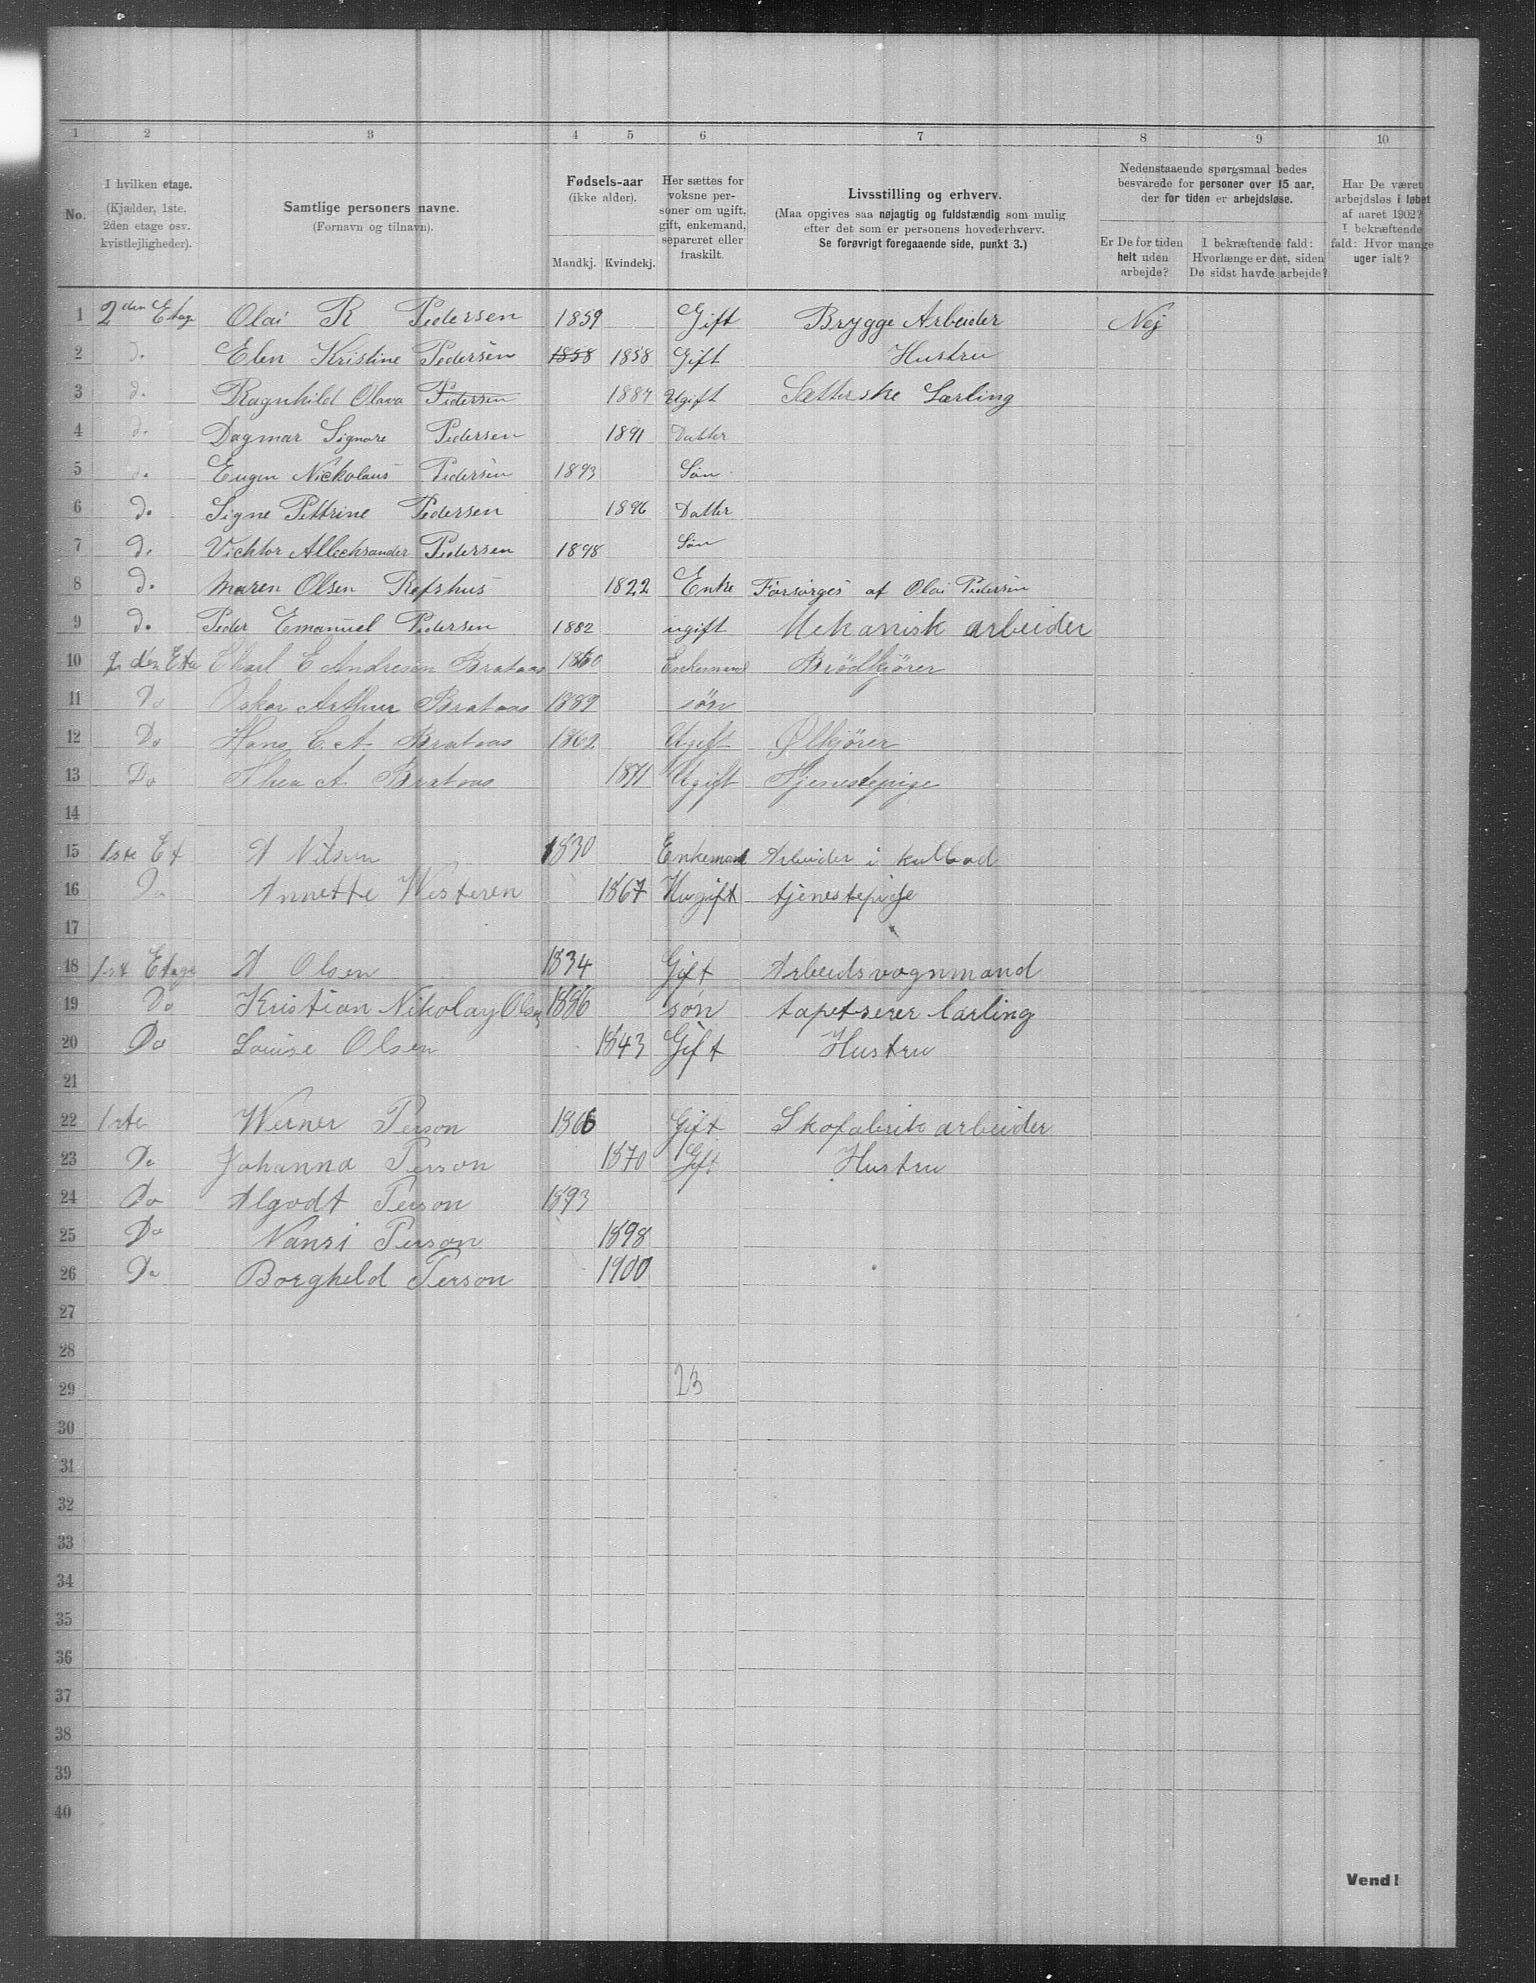 1 2 3 4 5 6 7 8 9 10
No.
I hvilken etage.
(Kjælder, 1ste.
2den etage osv.
kvistlejligheder).
Samtlige personers navne.
(Fornavn og tilnavn).
Fødsels-aar
(ikke alder).
Mandkj. Kvindekj.
Her sættes for
voksne per-
soner om ugift,
gift, enkemand,
separeret eller
fraskilt.
Livsstilling og erhverv.
(Maa opgives saa nøjagtig og fuldstændig som mulig
efter det som er personens hovederhverv.
Se forøvrigt foregaaende side, punkt 3.)
Nedenstaaende spørgsmaal bedes
besvarede for personer over 15 aar,
der for tiden er arbejdsløse.
Er De for tiden
helt uden
arbejde?
I bekræftende fald:
Hvorlænge er det, siden
De sidst havde arbejde?
Har De været
arbejdsløs i løbet
af aaret 1902?
I bekræftende
fald: Hvor mange
uger ialt?
1 2den Etage Olai R Pedersen 1859 Gift Brygge Arbeider Nej
2 d. Elen Kristine Pedersen 1858 1858 Gift Hustru
3 d. Ragnhild Olava Pedersen 1887 Ugift Sætterske Lærling
4 d. Dagmar Signore Pedersen 1891 Datter
5 d. Eugen Nickolaus Pedersen 1893 Søn
6 d. Signe Pettrine Pedersen 1896 Datter
7 d. Vichtor Allecksander Pedersen 1898 Søn
8 d. Maren Olsen Refshus 1822 Enke Forsørges af Olai Pedersen
9 d. Peder Emanuel Pedersen 1882 ugift Mekanisk arbeider
10 2 den Eta Charl E Andresen Brataas 1860 Enkemand Brödkjører
11 Do Oskar Arthur Brataas 1889 søn
12 Do Hans C. A. Brataas 1862 Ugift Ølkjører
13 Do Thea A Brataas 1871 Ugift Tjenestepige
14
15 1ste Et A Nilsen 1830 Enkemand Arbeider i kulbod
16 Do Annette Westeren 1867 Uugift tjenestepige
17
18 1st Etage A Olsen 1834 Gift Arbeidsvognmand
19 Do Kristian Nikolay Olsen 1886 søn tapetserer larling
20 Do Louise Olsen 1843 Gift Hustru
21
22 1ste Werner Person 1866 Gift Skofabrik arbeider
23 Do Johanna Person 1870 Gift Hustru
24 Do Algodt Person 1893
25 Do Nansi Person 1898
26 Do Borgheld Person 1900
27
28
29 23
30
31
32
33
34
35
36
37
38
39
40
Vend!